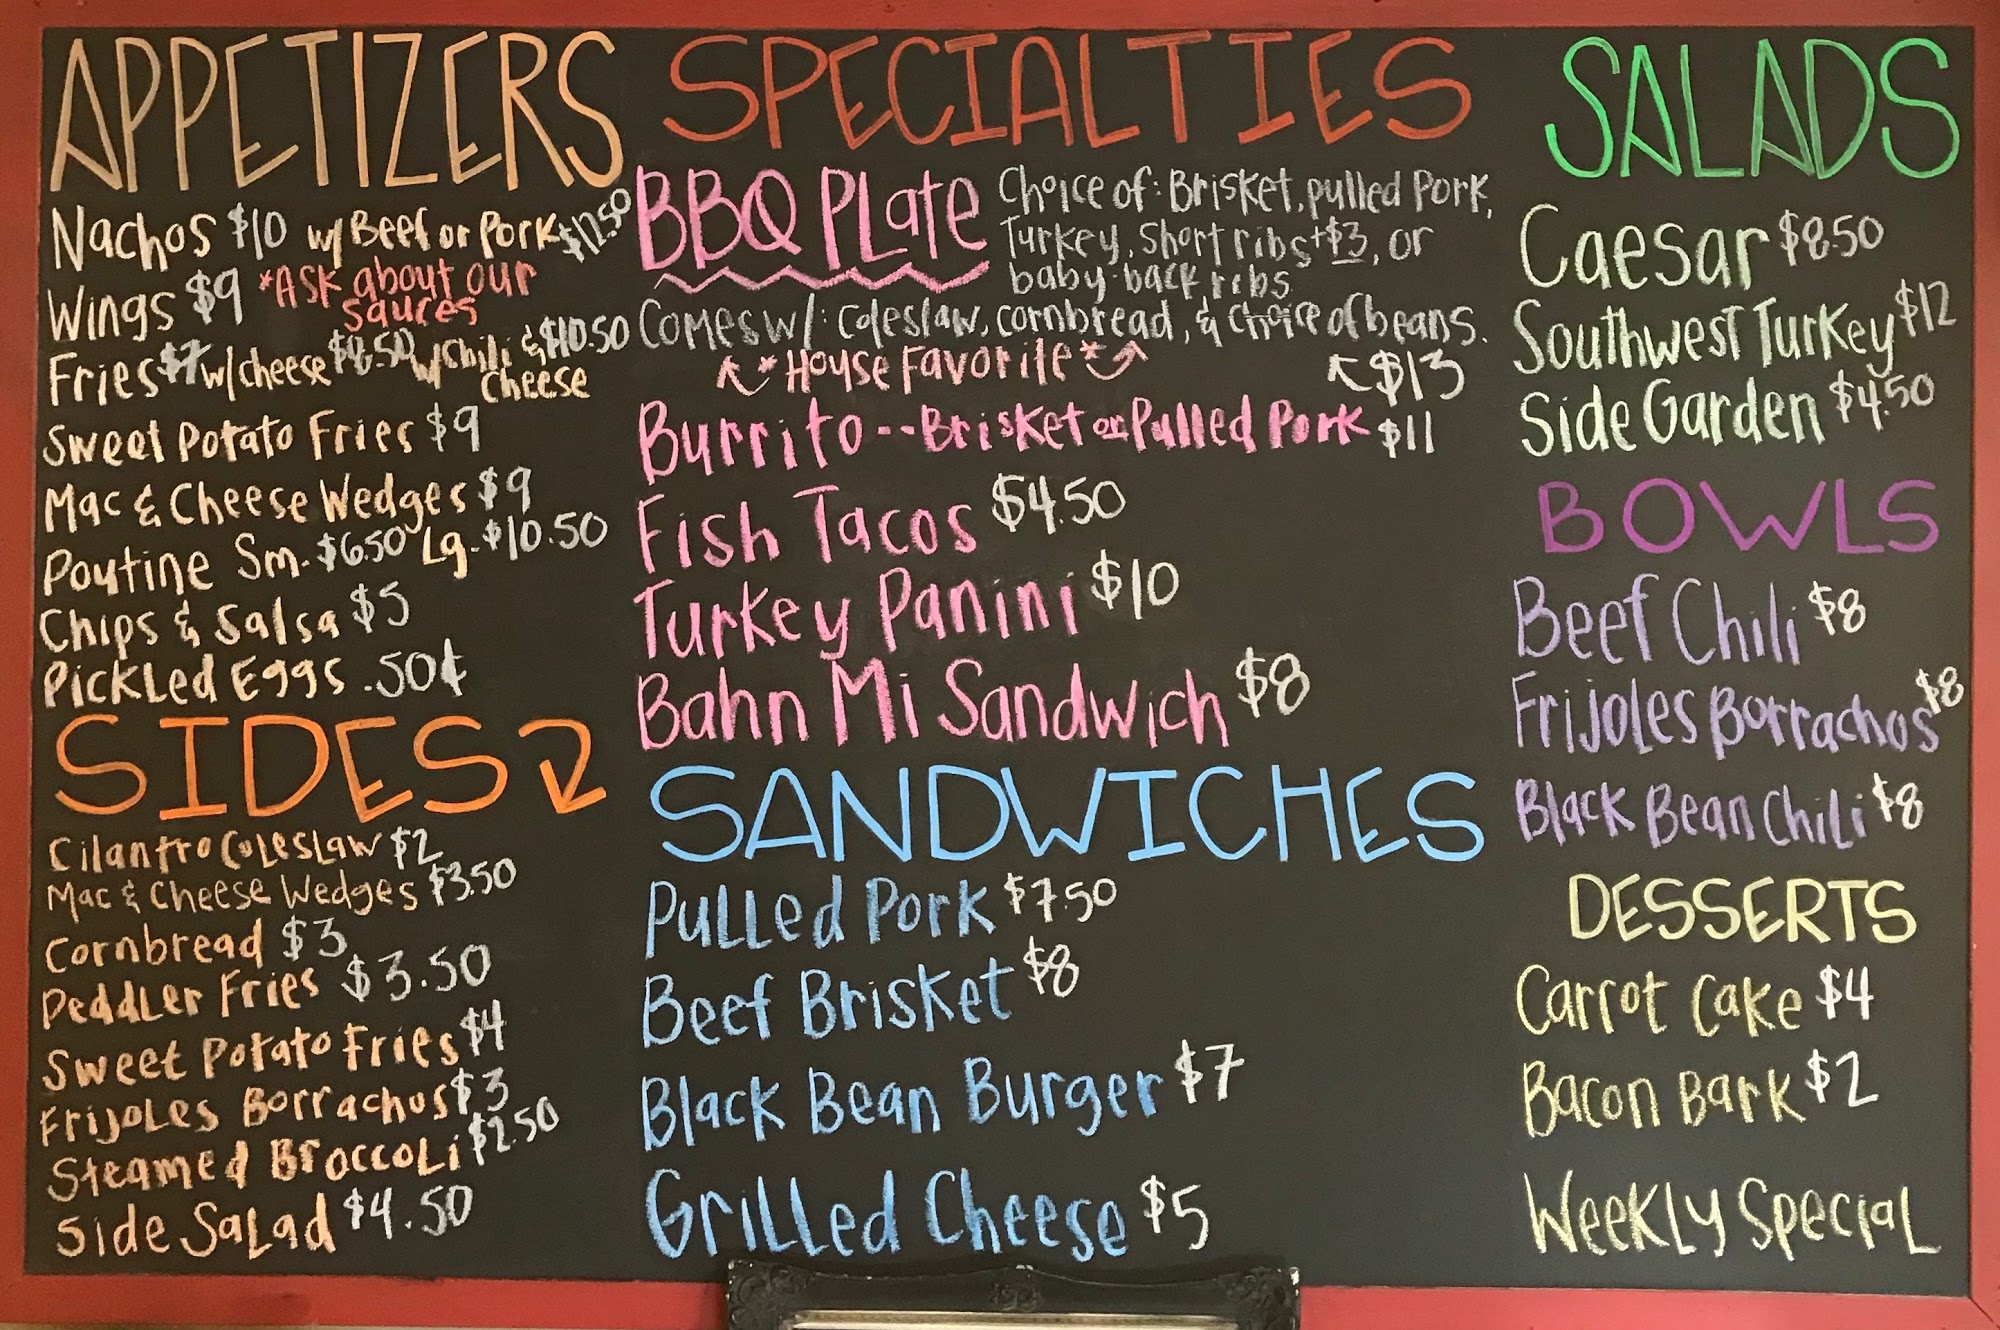 APPETIZERS
Nachos $10 w/ Beef or Pork $12.50
Wings $9 *Ask about our
sauces
Fries $7 w/cheese $8.50 w/chili & $10.50
cheese
Sweet Potato Fries $9
Mac & Cheese Wedges $9
Poutine Sm. $6.50 Lg. $10.50
Chips & Salsa $5
Pickled Eggs .50¢
SIDES
Cilantro Coleslaw $2
Mac & Cheese Wedges $3.50
Cornbread $3
Peddler Fries $3.50
Sweet Potato Fries $4
Frijoles Borrachos $3
Steamed Broccoli $2.50
Side Salad $4.50
SPECIALTIES
BBQ PLate
Choice of: Brisket, pulled Pork,
Turkey, Short ribs +$3, or
baby-back ribs
Comes w/: Coleslaw, cornbread, & choice of beans.
*House Favorite* $13
Burrito -- Brisket or Pulled Pork $11
Fish Tacos $4.50
Turkey Panini $10
Bahn Mi Sandwich $8
SANDWICHES
Pulled Pork $7.50
Beef Brisket $8
Black Bean Burger $7
Grilled Cheese $5
SALADS
Caesar $8.50
Southwest Turkey $12
Side Garden $4.50
BOWLS
Beef Chili $8
Frijoles Borrachos $8
Black Bean Chili $8
DESSERTS
Carrot Cake $4
Bacon Bark $2
Weekly Special